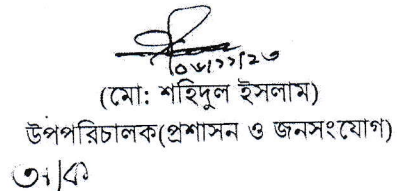 ০৬/১১/২৩
(মো: শহিদুল ইসলাম)
উপপরিচালক(প্রশাসন ও জনসংযোগ)